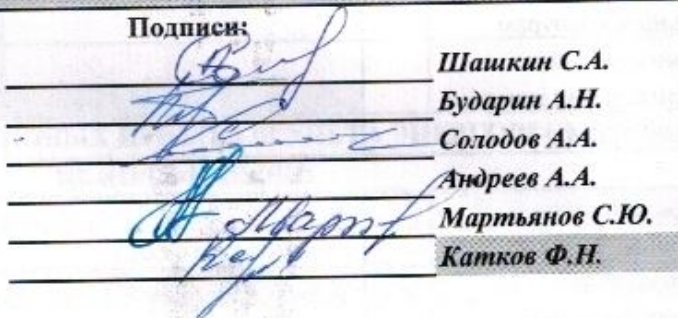 Подписи:
Шашкин С.А.
Бударин А.Н.
Солодов А.А.
Андреев А.А.
Мартьянов С.Ю.
Катков Ф.Н.